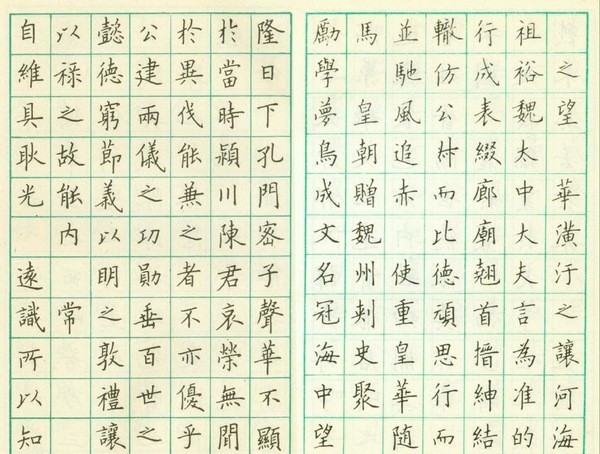 之望華潢汙之讓河海
祖裕魏太中大夫言為准的
行成表綴廊廟翹首搢紳結
轍仿公而比德頑思行而
並馳風追赤使重皇華隨
馬皇朝贈魏州刺史聚
勵學夢鳥成文名冠海中望
隆日下孔門宻子聲華不顯
於當時潁川陳君哀榮無聞
於異伐能兼之者不亦優乎
公建兩儀之功勛垂百世之
懿德窮節義以明之敦禮讓
以祿之故能內常
自維具耿光遠識所以知